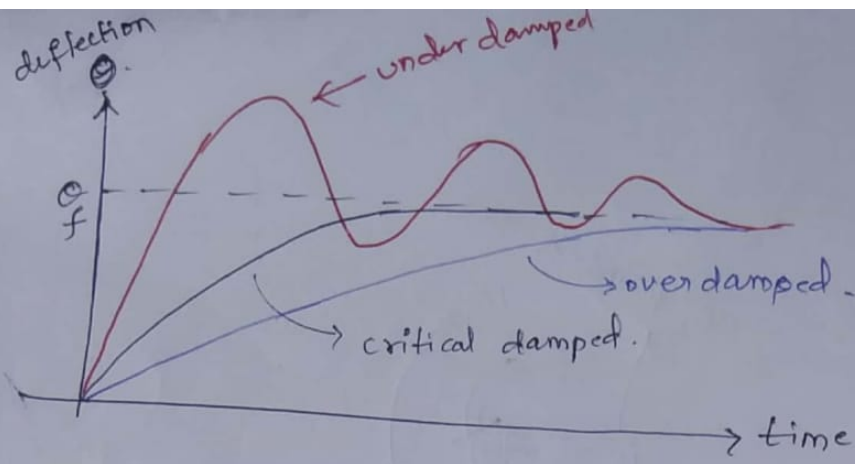 deflection
θ.
under damped
θ
f
over damped.
critical damped.
time